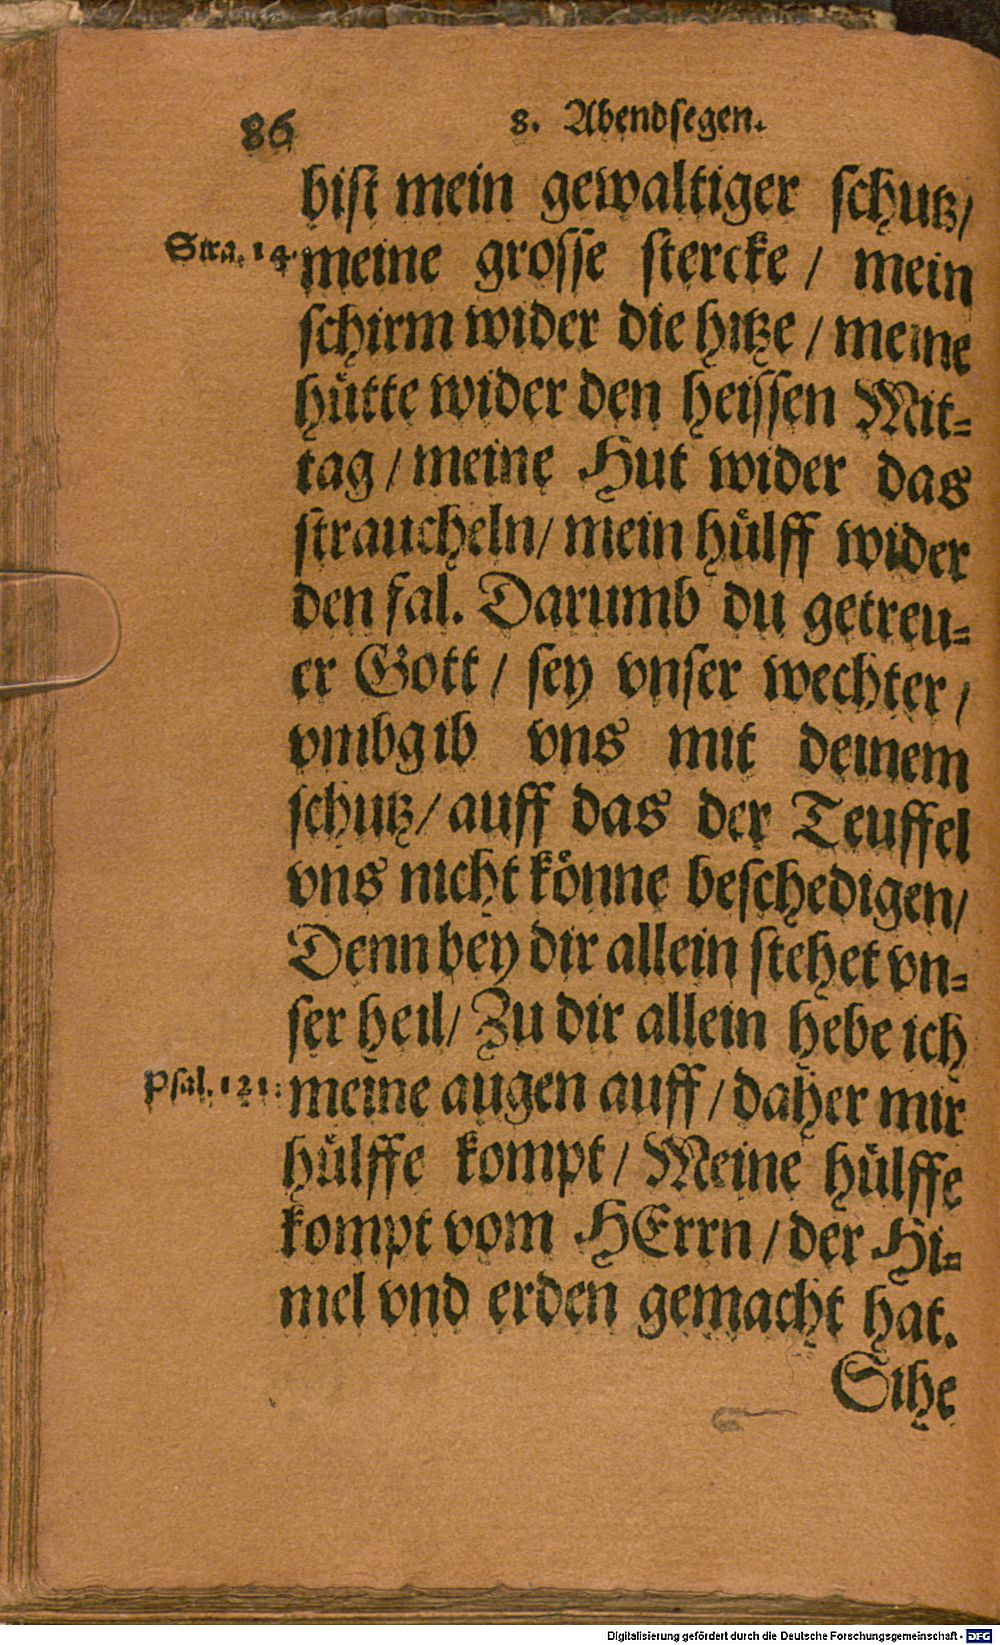 86
8. Abendsegen.
bist mein gewaltiger schutz/
Stra. 14.
meine grosse stercke / mein
schirm wider die hitze / meine
hütte wider den heissen Mit-
tag / meine Hut wider das
straucheln / mein hülff wider
den fal. Darumb du getreu-
er Gott / sey vnser wechter /
vmbgib vns mit deinem
schutz / auff das der Teuffel
vns nicht könne beschedigen /
Denn bey dir allein stehet vn-
ser heil / Zu dir allein hebe ich
Psal. 121.
meine augen auff / daher mir
hülffe kompt / Meine hülffe
kompt vom HErrn / der Hi-
mel vnd erden gemacht hat.
Sihe
Digitalisierung gefördert durch die Deutsche Forschungsgemeinschaft - DFG